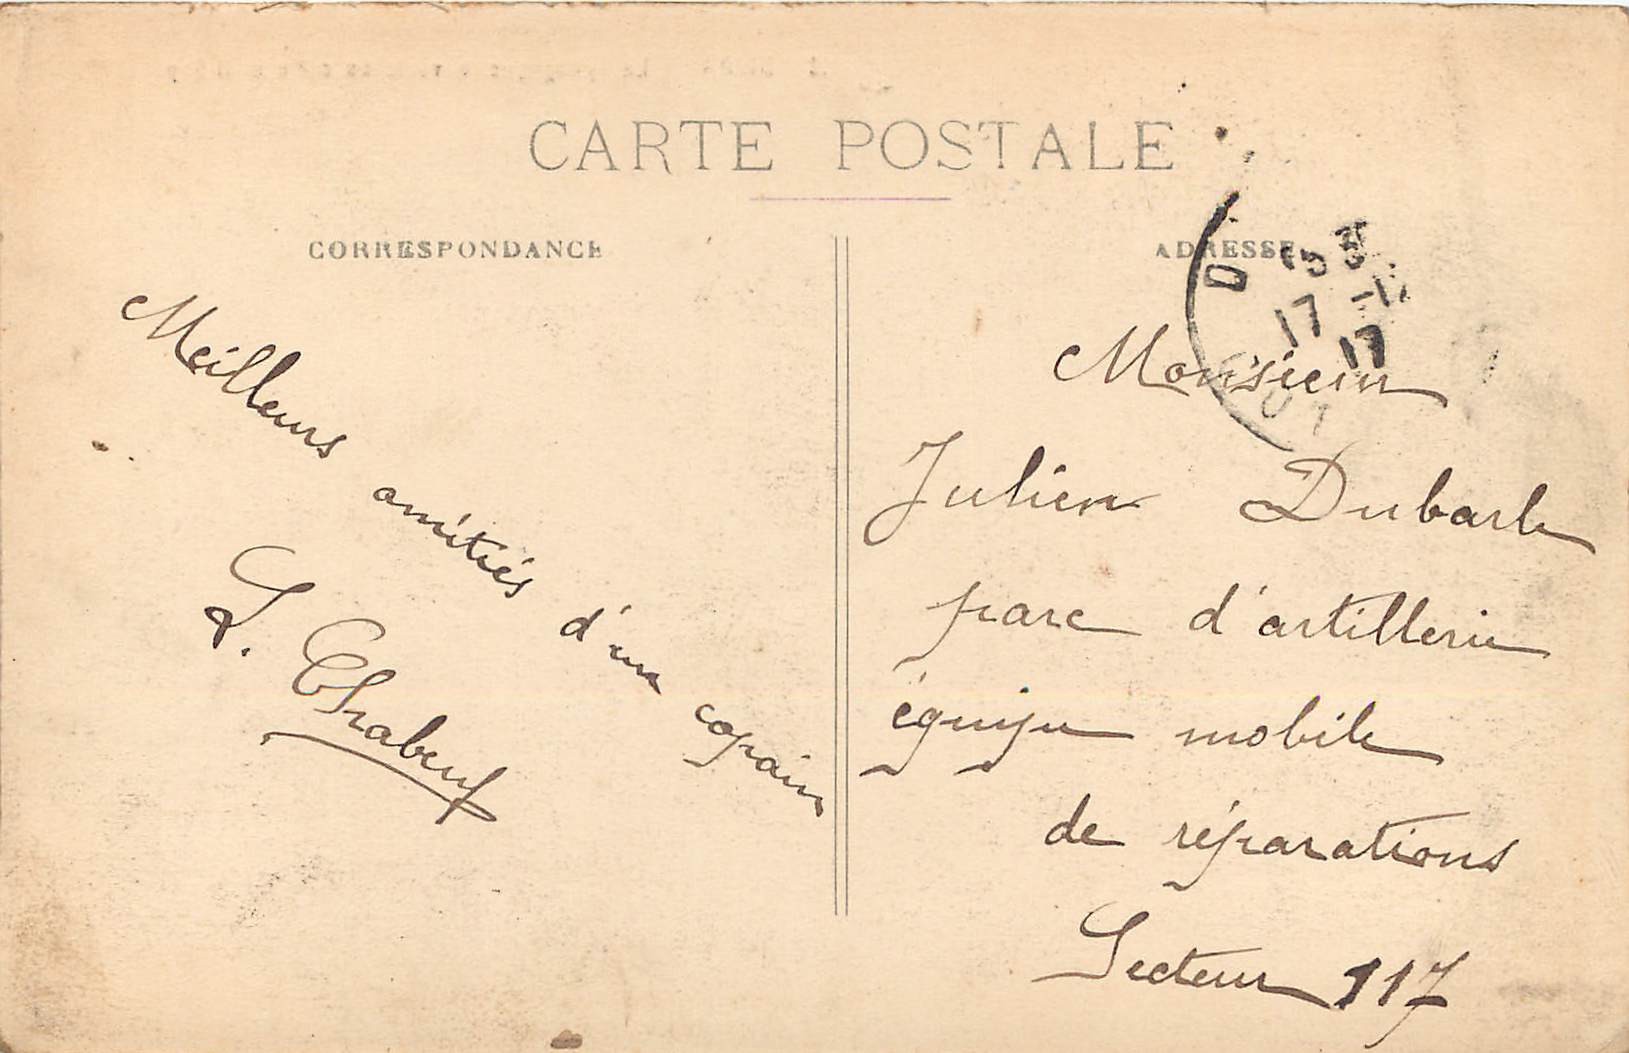 CARTE POSTALE
CORRESPONDANCE
Meilleurs amitiés d'un copain
L. Chabeuf
ADRESSE
17 -1
17
Monsieur
Julien Dubarle
parc d'artillerie
équipe mobile
de réparations
Secteur 117